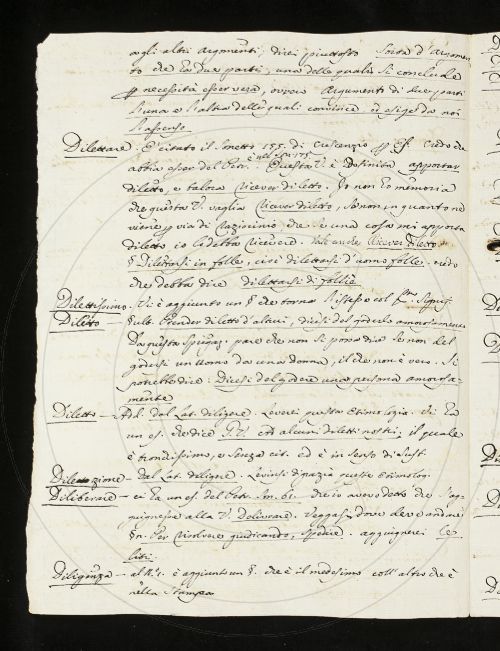 agli altri argomenti; direi piuttosto Sorta d'Argomen-
to che ha due parti, una delle quali si conclude
necessità esser vera, ovvero Argumenti di due parti
l'una e l'altra delle quali convince ed esige da noi
l'assenso.
Dilettare. È citato il Sonetto 155. di Crescenzio Credo che
abbia esser del Petr. è nel Son. 175. Questa V. è Definita apportar
diletto, e talora Ricever diletto. Io non ho memoria
che questa V. vaglia Ricever diletto, se non in quanto ne
viene per via di raziocinio che se una cosa mi apporta
diletto, io lo debba ricevere. Ricever diletto
§ Dilettarsi in folle, cioè dilettarsi d'uomo folle. credo
che debba dire dilettarsi di follie
Dilettissimo. Vi è aggiunto un § che torna l'istesso col
Diletto — § ult. Prender diletto d'altrui, dicesi del goderlo amorosamente
Da questa spiegaz. pare che non si possa dire se non del
godersi un uomo da una donna, il che non è vero. Si
potrebbe dire: Dicesi del godere una persona amorosa-
mente
Diletto — Add. dal Lat. diligere. Leverei questa Etimologia. Vi ha
un es. che dice alcuni diletti nostri, il quale
è tronchissimo, e senza cit. ed è in senso di sust.
Dilettazione — dal Lat. Levisi di grazia queste Etimolog.
Deliberare — ci ha un es. del Petr. Son. 61. che io avevo detto che s'ag-
giugnesse alla V. Delivrare. Veggasi dove deve andare
In Per risolvere giudicando, spedire. aggiugnerei
Diligenza — al N.º 1. è aggiunto un §. che è il medesimo coll'altro che è
nella Stampa